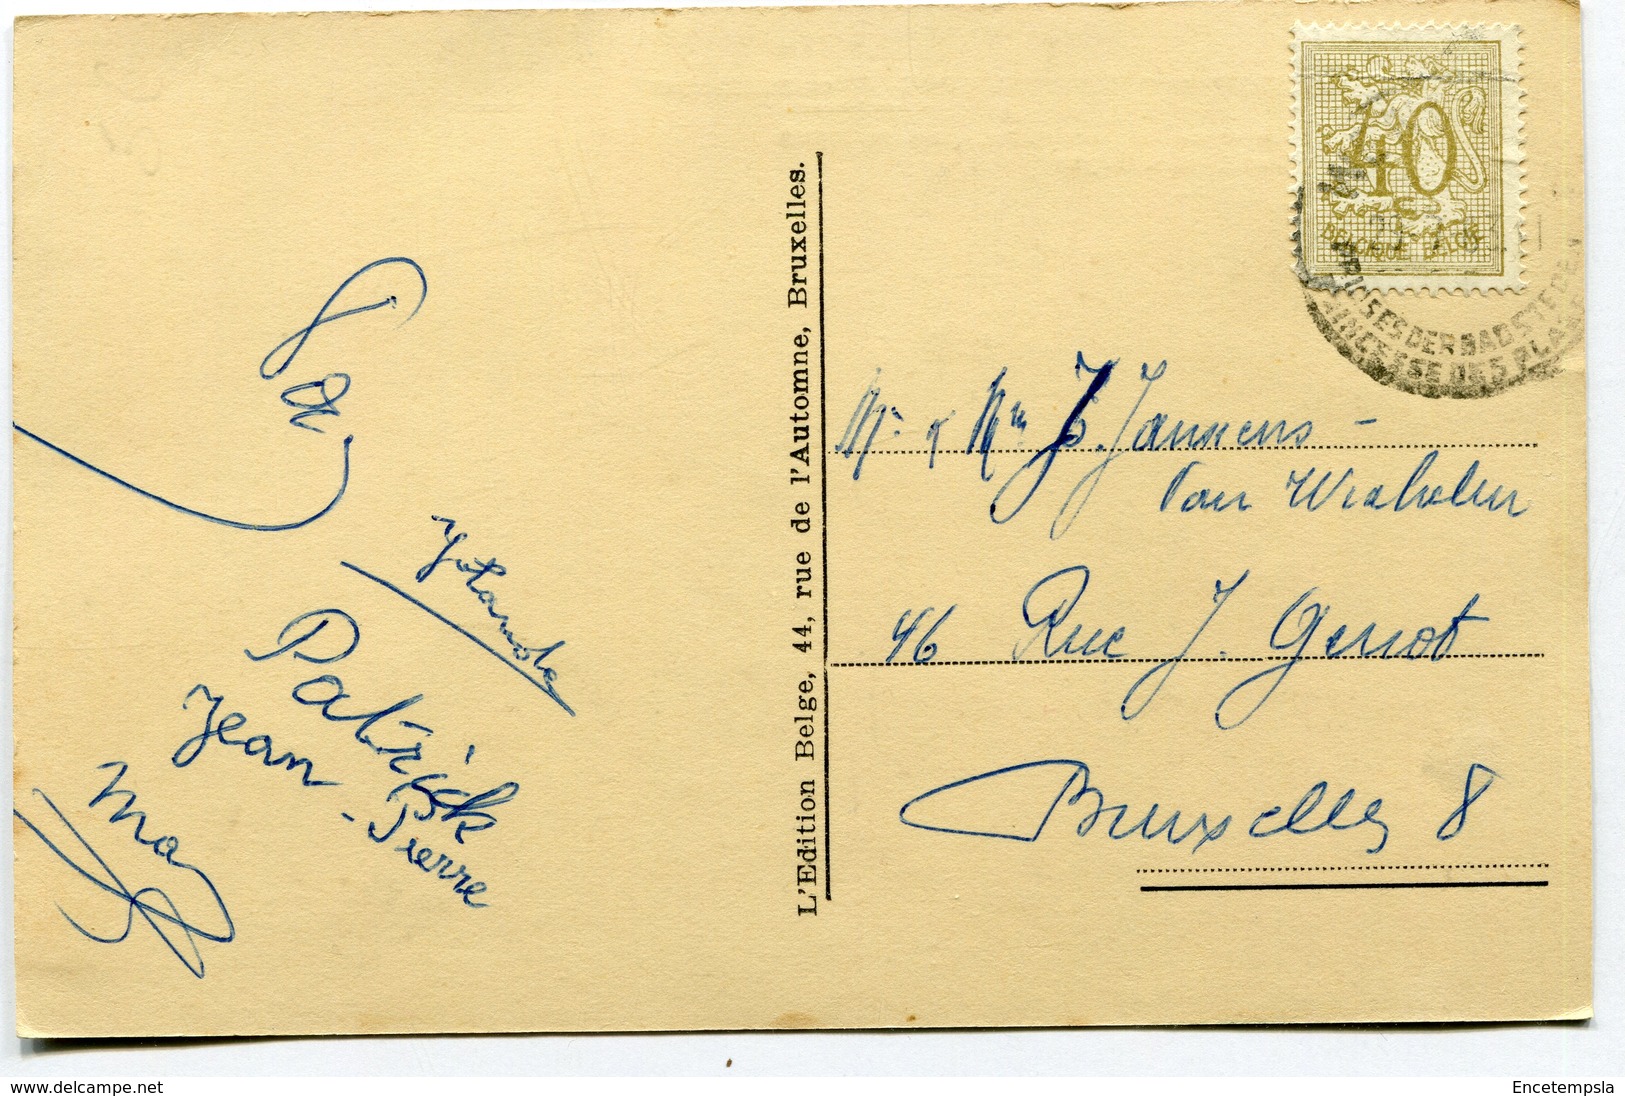 Yolande
Patrick
Jean-Pierre
May
L'Edition Belge, 44, rue de l'Automne, Bruxelles.
40
BELGIQUE BELGIE
PRINSES DER BADSTEDEN
PRINCESSE DES PLAGES
Mr & Mm J. Janssens -
Van
46 Rue J. Genot
Bruxelles 8
www.delcampe.net
Encetempsla